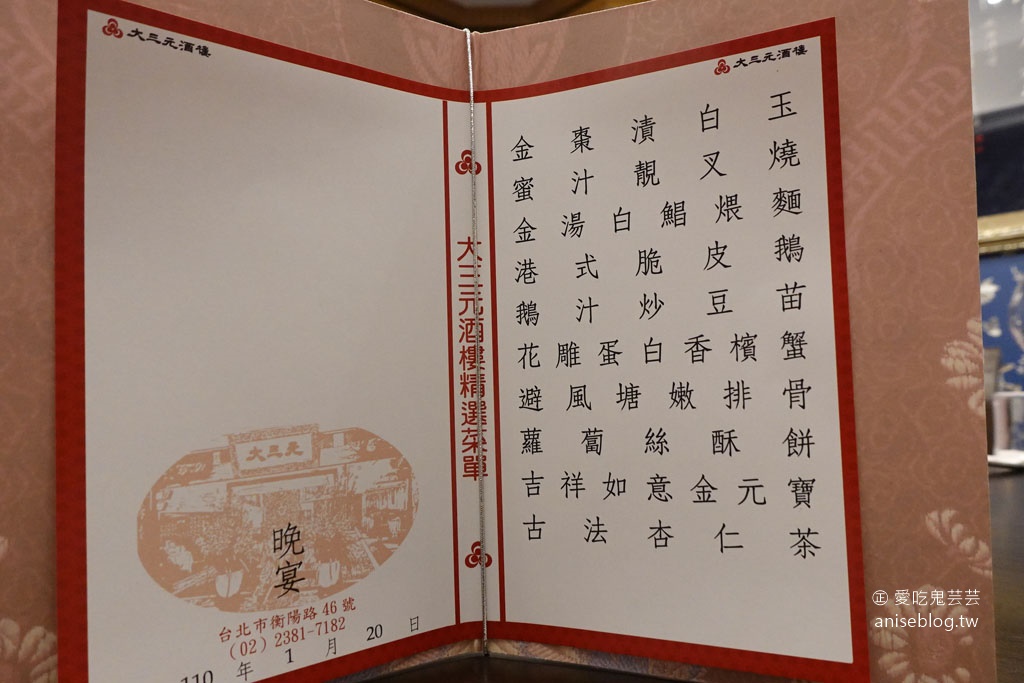 大三元酒樓
晚宴
台北市衡陽路 46 號
(02) 2381-7182
110 年 1 月 20 日
大三元酒樓精選菜單
大三元酒樓
金棗漬白玉
蜜汁靚叉燒
金湯白鯧煨麵
港式脆皮鵝
鵝汁炒豆苗
花雕蛋白香檳蟹
避風塘嫩排骨
蘿蔔絲酥餅
吉祥如意金元寶
古法杏仁茶
大三元
㊣ 愛吃鬼芸芸
aniseblog.tw